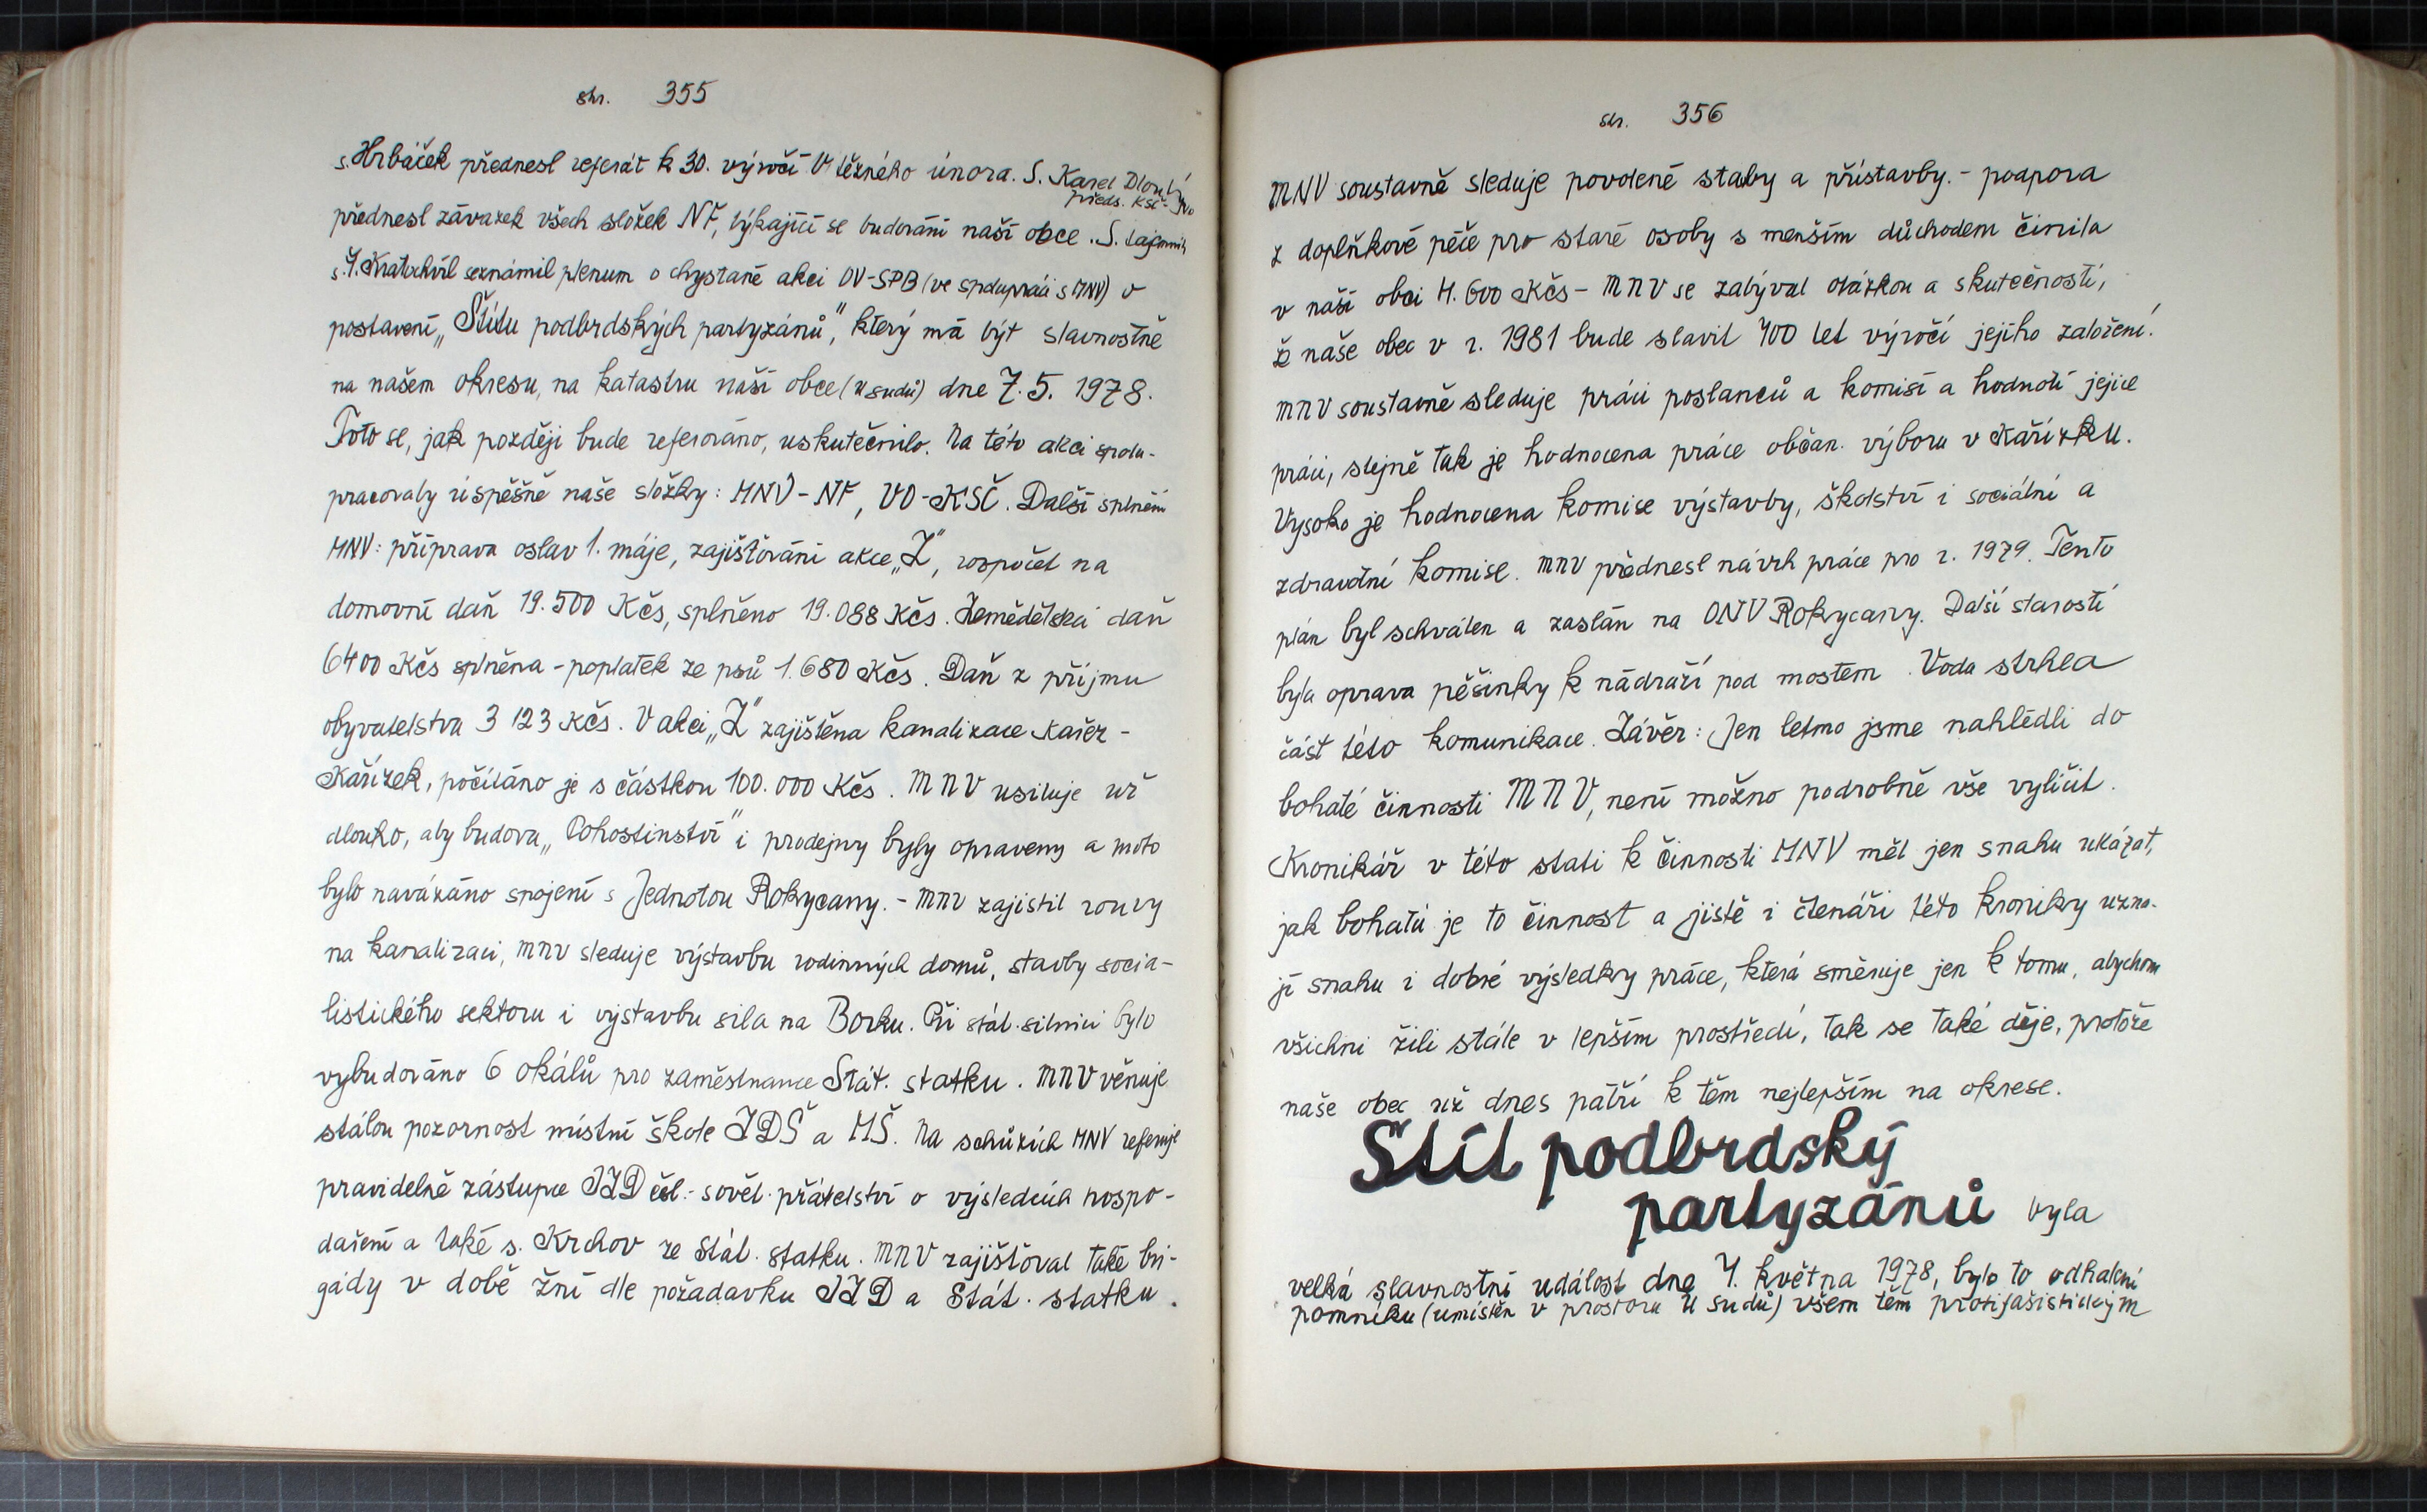 str. 355
s. Hrbáček přednesl referát k 30. výročí Vítězného února. S. Karel Dlouhý
předs. KSČ-
přednesl závazek všech složek NF, týkající se budování naší obce. S. tajemník
s. J. Kratochvíl seznámil plenum o chystané akci OV-SPB (ve spolupráci s MNV) o
postavení „Štítu podbrdských partyzánů", který má být slavnostně
na našem okresu, na katastru naší obce (U sudů) dne 7. 5. 1978.
Toto se, jak později bude referováno, uskutečnilo. Na této akci spolu-
pracovaly úspěšně naše složky: MNV-NF, VO-KSČ. Další splnění
MNV: příprava oslav 1. máje, zajišťování akce „Z", rozpočet na
domovní daň 19.500 Kčs, splněno 19.088 Kčs. Zemědělská daň
6400 Kčs splněna - poplatek ze psů 1.680 Kčs. Daň z příjmu
obyvatelstva 3 123 Kčs. V akci „Z" zajištěna kanalizace Kařez-
Kařízek, počítáno je s částkou 100.000 Kčs. MNV usiluje už
dlouho, aby budova „Pohostinství" i prodejny byly opraveny a proto
bylo navázáno spojení s Jednotou Rokycany. - MNV zajistil roury
na kanalizaci, MNV sleduje výstavbu rodinných domů, stavby socia-
listického sektoru i výstavbu sila na Borku. Při stát. silnici bylo
vybudováno 6 okálů pro zaměstnance Stát. statku. MNV věnuje
stálou pozornost místní škole ZDŠ a MŠ. Na schůzích MNV referuje
pravidelně zástupce JZD čsl.-sovět. přátelství o výsledcích hospo-
daření a také s. Krchov ze Stát. statku. MNV zajišťoval také bri-
gády v době žní dle požadavku JZD a Stát. statku.
str. 356
MNV soustavně sleduje povolené stavby a přístavby. - podpora
z doplňkové péče pro staré osoby s menším důchodem činila
v naší obci 4.600 Kčs - MNV se zabýval otázkou a skutečností,
že naše obec v r. 1981 bude slavit 400 let výročí jejího založení.
MNV soustavně sleduje práci poslanců a komisí a hodnotí jejich
práci, stejně tak je hodnocena práce občan. výboru v Kařízku.
Vysoko je hodnocena komise výstavby, školství i sociální a
zdravotní komise. MNV přednesl návrh práce pro r. 1979. Tento
plán byl schválen a zaslán na ONV Rokycany. Další starostí
byla oprava pěšinky k nádraží pod mostem. Voda strhla
část této komunikace. Závěr: Jen letmo jsme nahlédli do
bohaté činnosti MNV, není možno podrobně vše vylíčit.
Kronikář v této stati k činnosti MNV měl jen snahu ukázat,
jak bohatá je to činnost a jistě i čtenáři této kroniky uzna-
jí snahu i dobré výsledky práce, která směruje jen k tomu, abychom
všichni žili stále v lepším prostředí, tak se také děje, protože
naše obec už dnes patří k těm nejlepším na okrese.
Štít podbrdský
partyzánů byla
velká slavnostní událost dne 7. května 1978, bylo to odhalení
pomníku (umístěn v prostoru U sudů) všem těm protifašistickým